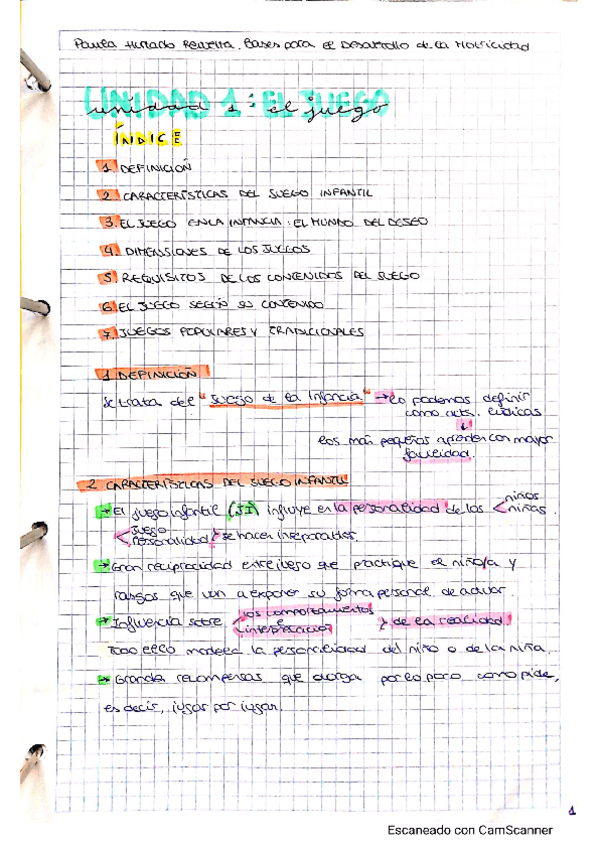 Paula Hurtado Revuelta. Bases para el Desarrollo de la Motricidad
UNIDAD 1: EL JUEGO
unidad 1: el juego
ÍNDICE
1. DEFINICIÓN
2. CARACTERÍSTICAS DEL JUEGO INFANTIL
3. EL JUEGO EN LA INFANCIA: EL MUNDO DEL DESEO
4. DIMENSIONES DE LOS JUEGOS
5. REQUISITOS DE LOS CONTENIDOS DEL JUEGO
6. EL JUEGO SEGÚN SU CONTENIDO
7. JUEGOS POPULARES Y TRADICIONALES
1 DEFINICIÓN
Se trata del "Juego de la Infancia" → lo podemos definir
como acts. lúdicas
↓
los más pequeños aprenden con mayor
facilidad.
2 CARACTERÍSTICAS DEL JUEGO INFANTIL
→ El juego infantil (JI) influye en la personalidad de los < niños
niñas.
< Juego
Personalidad } se hacen inseparables.
→ Gran reciprocidad entre juego que practique el niño/a y
rasgos que van a exponer su forma personal de actuar.
→ Influencia sobre < los comportamientos
e
interpretación } de la realidad.
Todo ello modela la personalidad del niño o de la niña.
→ Grandes recompensas que otorga por lo poco como pide,
es decir, jugar por jugar.
1
Escaneado con CamScanner